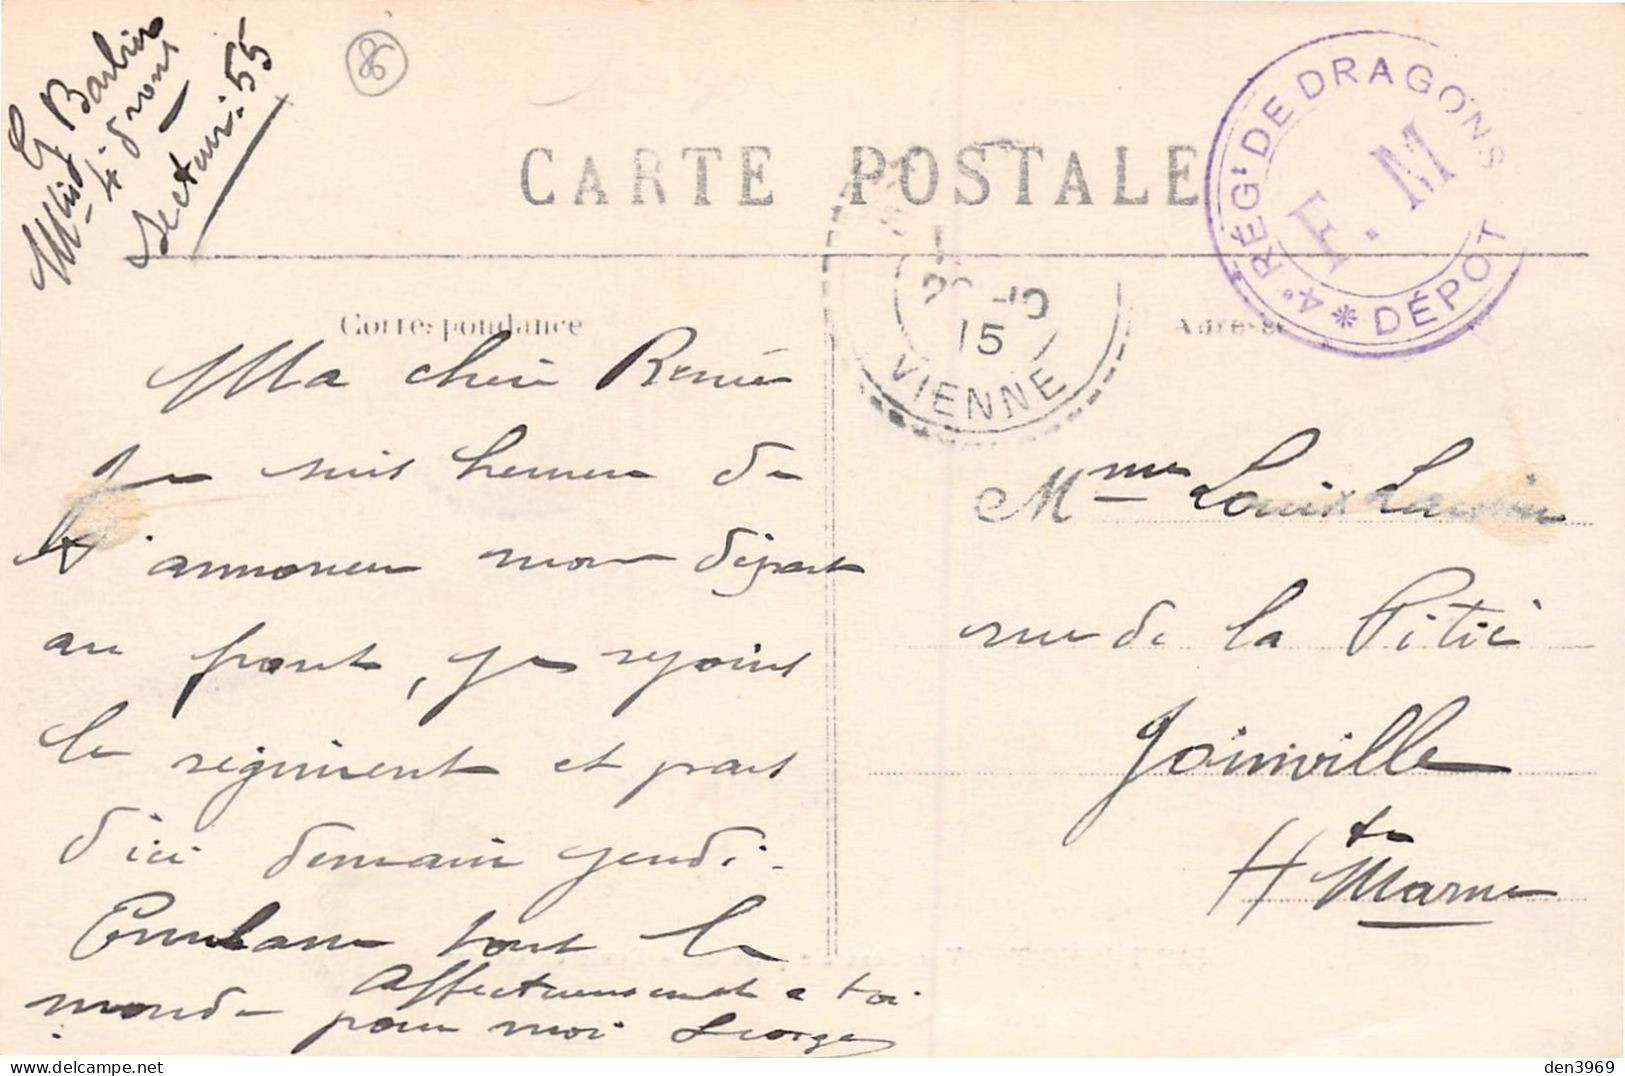 G Barbier
4e drons
Secteur: 55
86
CARTE POSTALE
4e RÉGt DE DRAGONS
* DÉPOT
F. M
-10
15
VIENNE
Correspondance
Adresse
Ma chère Renée
Je suis heureux de
t'annoncer mon départ
au front, je rejoins
le régiment et pars
d'ici demain jeudi.
Embrasse tout le
monde
pour moi
Affectueusement a toi
Georges
Mme Louis
rue de la Pitié
Joinville
Hte Marne
den3969